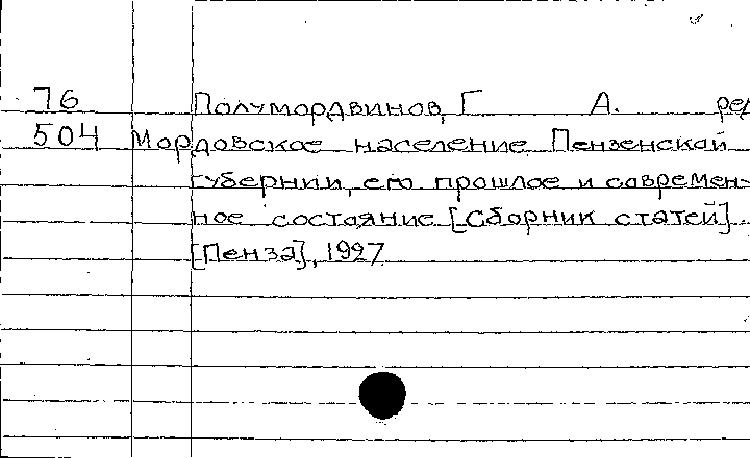 76 Полумордвинов, Г А. ред
504 Мордовское население Пензенской
губернии, его прошлое и современ-
ное состояние [Сборник статей]
[Пенза], 1927